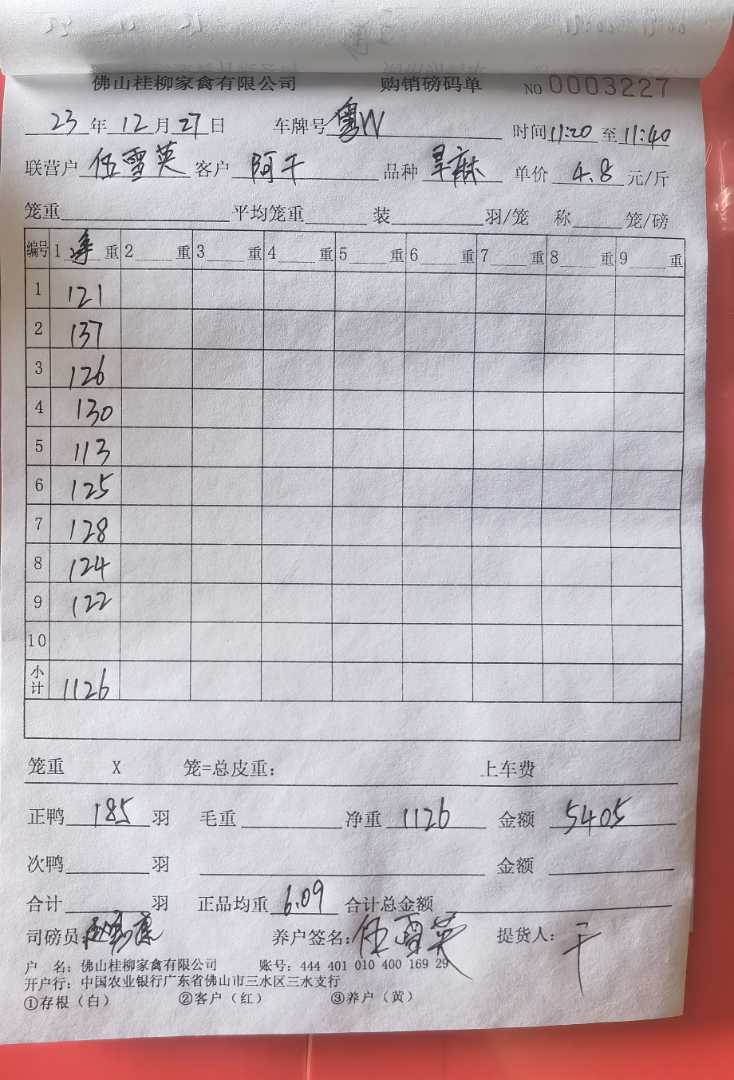 佛山桂柳家禽有限公司 购销磅码单 NO 0003227
23 年 12 月 27 日 车牌号 粤W 时间 11:20 至 11:40
联营户 伍雪英 客户 阿干 品种 旱麻 单价 4.8 元/斤
笼重 平均笼重 装 羽/笼 称 笼/磅
编号 1 净 重 2 重 3 重 4 重 5 重 6 重 7 重 8 重 9 重
1 121
2 137
3 126
4 130
5 113
6 125
7 128
8 124
9 122
10
小计 1126
笼重 X 笼=总皮重: 上车费
正鸭 185 羽 毛重 净重 1126 金额 5405
次鸭 羽 金额
合计 羽 正品均重 6.09 合计总金额
司磅员: 养户签名: 伍雪英 提货人: 干
户 名: 佛山桂柳家禽有限公司 账号: 444 401 010 400 169 29
开户行: 中国农业银行广东省佛山市三水区三水支行
①存根(白) ②客户(红) ③养户(黄)